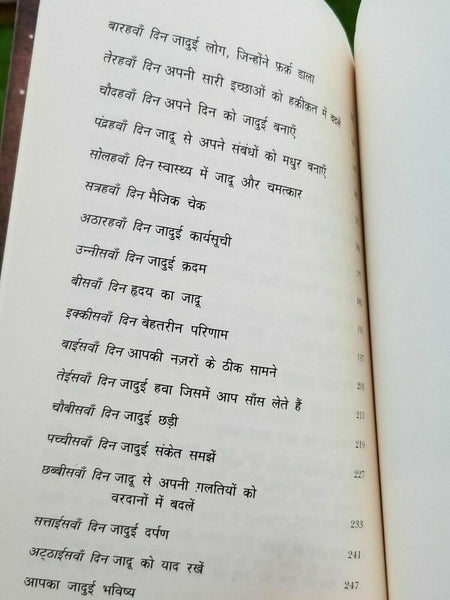 बारहवाँ दिन जादुई लोग, जिन्होंने फ़र्क़ डाला
तेरहवाँ दिन अपनी सारी इच्छाओं को हक़ीक़त में बदलें
चौदहवाँ दिन अपने दिन को जादुई बनाएँ
पंद्रहवाँ दिन जादू से अपने संबंधों को मधुर बनाएँ
सोलहवाँ दिन स्वास्थ्य में जादू और चमत्कार
सत्रहवाँ दिन मैजिक चेक
अठारहवाँ दिन जादुई कार्यसूची
उन्नीसवाँ दिन जादुई क़दम
बीसवाँ दिन हृदय का जादू
इक्कीसवाँ दिन बेहतरीन परिणाम
बाईसवाँ दिन आपकी नज़रों के ठीक सामने 197
तेईसवाँ दिन जादुई हवा जिसमें आप साँस लेते हैं 205
चौबीसवाँ दिन जादुई छड़ी 211
पच्चीसवाँ दिन जादुई संकेत समझें 219
छब्बीसवाँ दिन जादू से अपनी ग़लतियों को 227
वरदानों में बदलें
सत्ताईसवाँ दिन जादुई दर्पण 233
अट्ठाईसवाँ दिन जादू को याद रखें 241
आपका जादुई भविष्य 247